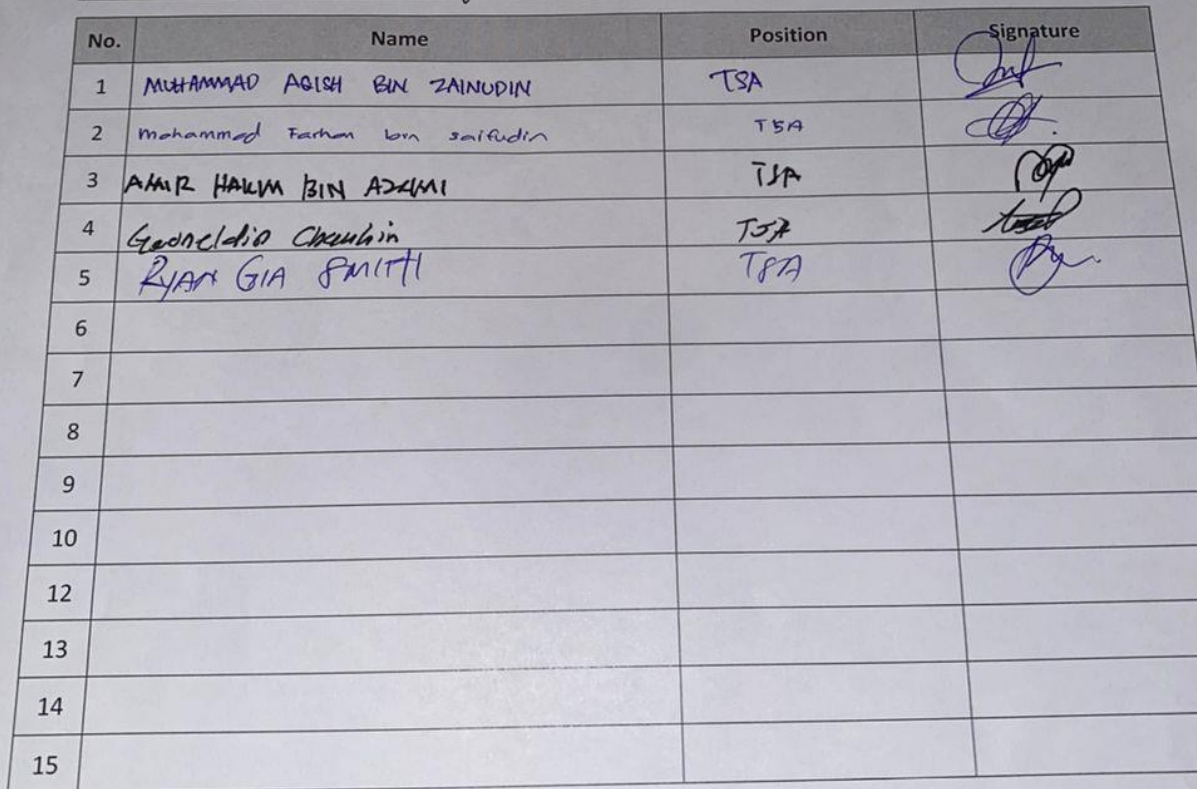 No. Name Position Signature
1 MUHAMMAD AQISH BIN ZAINUDIN TSA
2 mohammad Farhan bin saifudin TSA
3 AMIR HAKIM BIN AZAMI TSA
4 TSA
5 RYAN GIA SMITH TSA
6
7
8
9
10
12
13
14
15